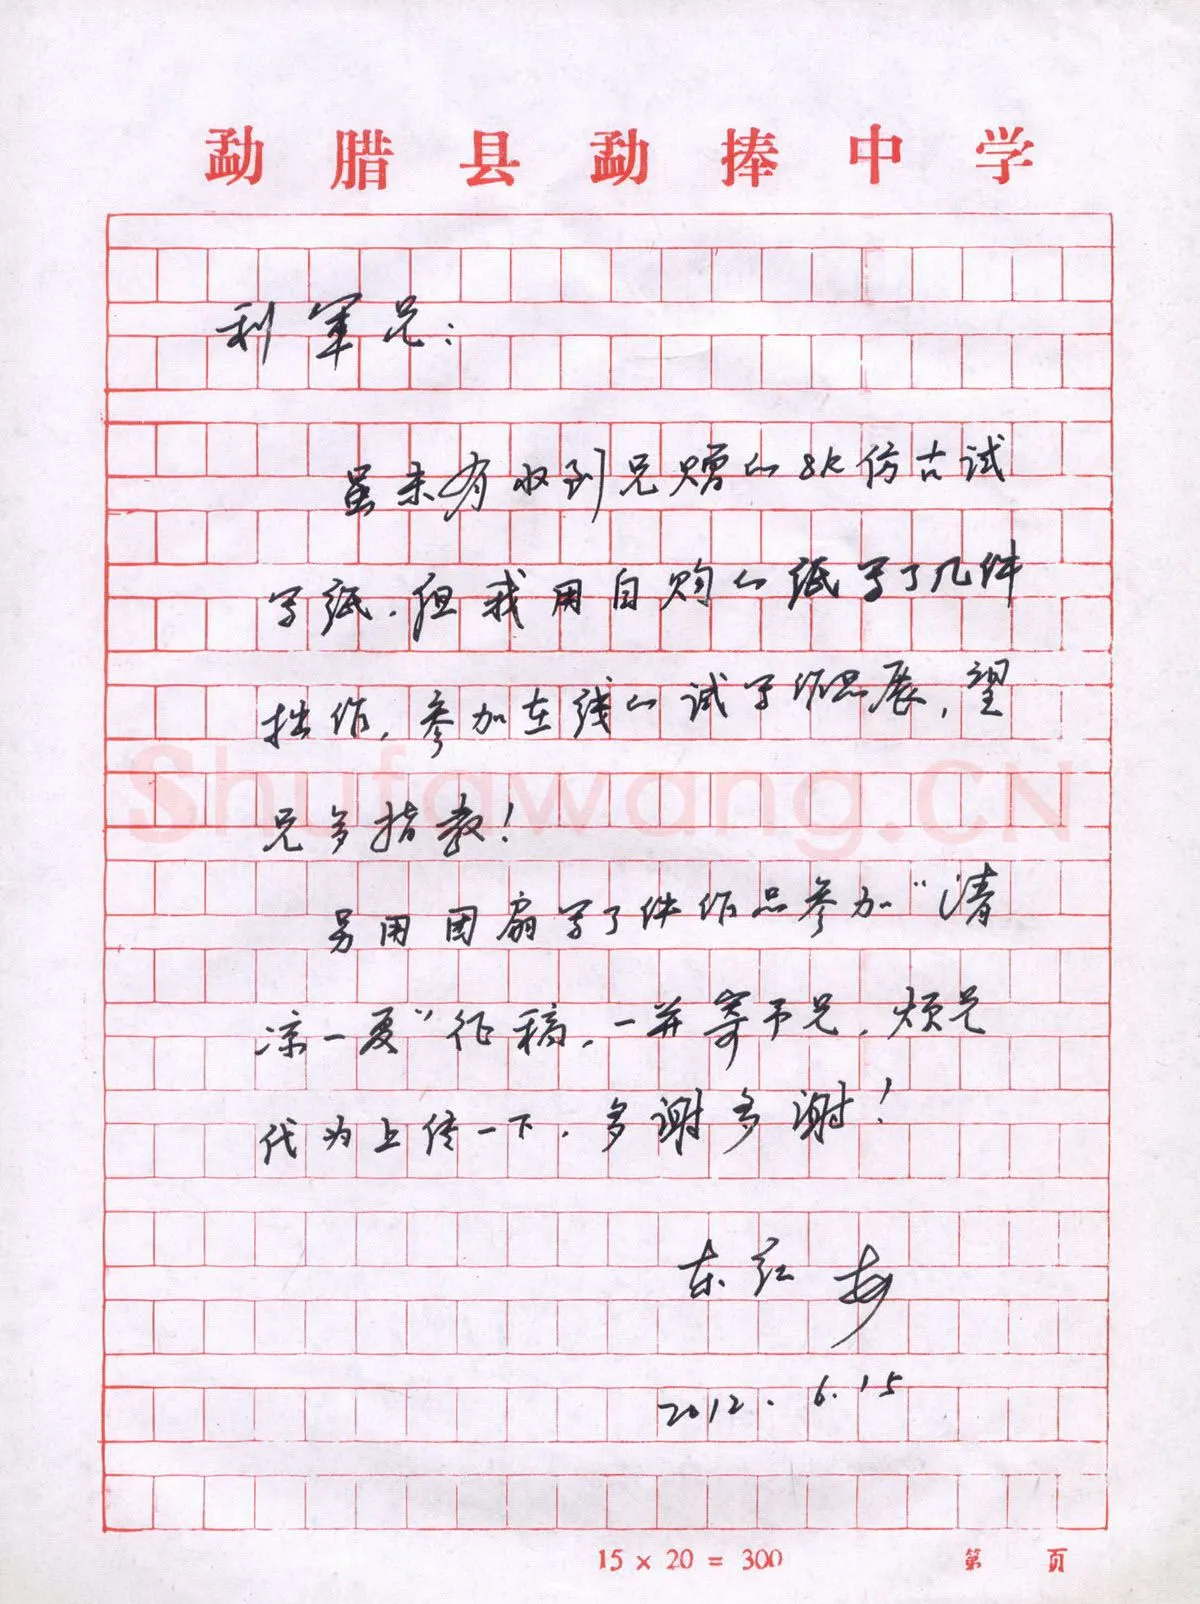 勐腊县勐捧中学
利軍兄:
虽未有收到兄赠的8K仿古试
写纸.但我用自购的纸写了几件
拙作,参加在线的试写作品展,望
兄多指教!
Shufawang.CN
另用团扇写了件作品参加“清
凉一夏”征稿,一并寄予兄,烦兄
代为上传一下,多谢多谢!
东红
2012.6.15
15×20=300 第 页